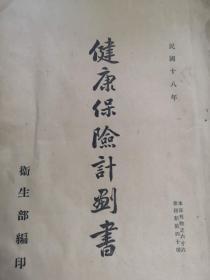 民國十八年
健康保險計劃書
衞生部編印